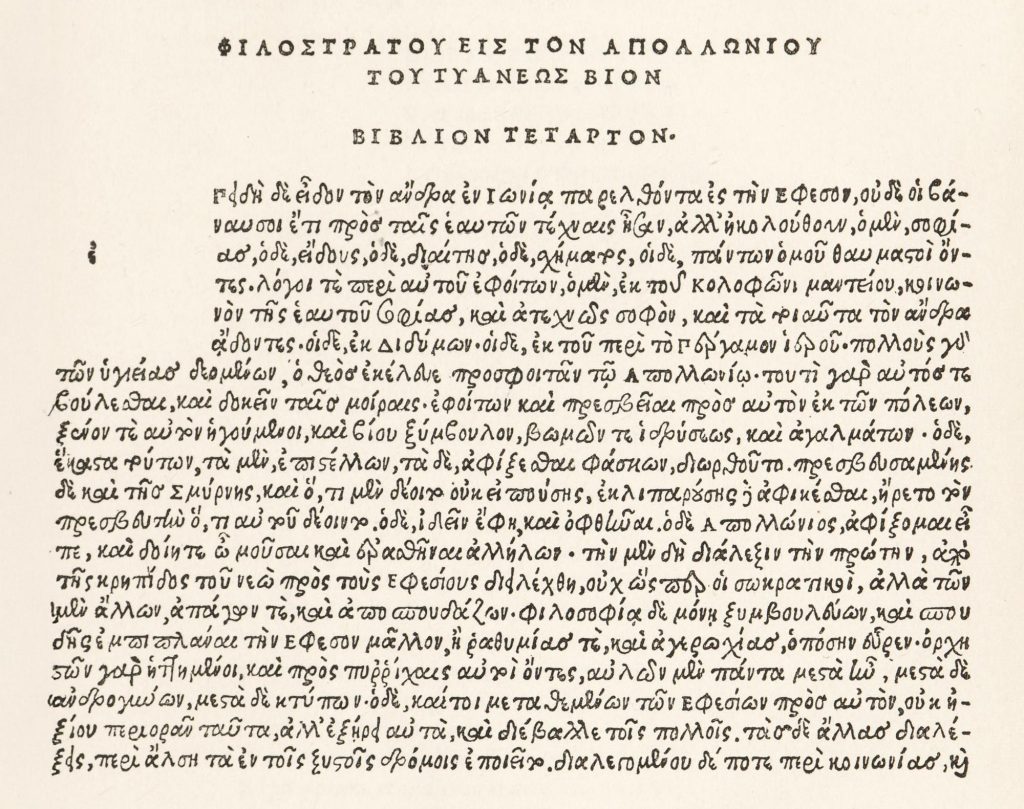 ΦΙΛΟΣΤΡΑΤΟΥ ΕΙΣ ΤΟΝ ΑΠΟΛΛΩΝΙΟΥ
ΤΟΥ ΤΥΑΝΕΩΣ ΒΙΟΝ
ΒΙΒΛΙΟΝ ΤΕΤΑΡΤΟΝ.
ἐ
Πειδὴ δὲ εἶδον τὸν ἄνδρα ἐν Ιωνίᾳ παρελθόντα ἐς τὴν Εφεσον, οὐδὲ οἱ βά-
ναυσοι ἔτι πρὸς ταῖς ἑαυτῶν τέχναις ἦσαν, ἀλλ' ἠκολούθουν, ὁ μὲν, σοφί-
ας, ὁ δὲ, εἴδους, ὁ δὲ, διαίτης, ὁ δὲ, σχήματος, οἱ δὲ, πάντων ὁμοῦ θαυμαστοὶ ὄν-
τες. λόγοι τὲ περὶ αὐτοῦ ἐφοίτων, ὁ μὲν, ἐκ τοῦ Κολοφῶνι μαντείου, κοινω-
νὸν τῆς ἑαυτοῦ σοφίας, καὶ ἀτεχνῶς σοφὸν, καὶ τὰ τοιαῦτα τὸν ἄνδρα
ᾄδοντες. οἱ δὲ, ἐκ Διδύμων. οἱ δὲ, ἐκ τοῦ περὶ τὸ Πέργαμον ἱεροῦ. πολλοὺς γὰρ
τῶν ὑγιείας δεομένων, ὁ θεὸς ἐκέλευε προσφοιτᾶν τῷ Απολλωνίῳ. τουτὶ γὰρ αὐτός τε
βούλεσθαι, καὶ δοκεῖν ταῖς μοίραις. ἐφοίτων καὶ πρεσβεῖαι πρὸς αὐτὸν ἐκ τῶν πόλεων,
ξένον τὲ αὐτὸν ἡγούμενοι, καὶ βίου ξύμβουλον, βωμῶν τε ἱδρύσεως, καὶ ἀγαλμάτων. ὁ δὲ,
ἕκαστα τούτων, τὰ μὲν, ἐπιστέλλων, τὰ δὲ, ἀφίξεσθαι φάσκων, διωρθοῦτο. πρεσβευσαμένης
δὲ καὶ τῆς Σμύρνης, καὶ ὅ, τι μὲν δέοιτο οὐκ εἰπούσης, ἐκλιπαρούσης δὲ ἀφικέσθαι, ἤρετο τὸν
πρεσβευτὴν ὅ, τι αὐτοῦ δέοιντο. ὁ δὲ, ἰδεῖν ἔφη, καὶ ὀφθῆναι. ὁ δὲ Απολλώνιος, ἀφίξομαι εἶ
πε, καὶ δοίητε ὦ μοῦσαι καὶ ἐρασθῆναι ἀλλήλων. τὴν μὲν δὴ διάλεξιν τὴν πρώτην, ἀπὸ
τῆς κρηπῖδος τοῦ νεὼ πρὸς τοὺς Εφεσίους διελέχθη, οὐχ ὥσπερ οἱ σωκρατικοὶ, ἀλλὰ τῶν
μὲν ἄλλων, ἀπάγων τὲ, καὶ ἀποσπουδάζων. Φιλοσοφίᾳ δὲ μόνῃ ξυμβουλεύων, καὶ σπου
δῆς ἐμπιπλάναι τὴν Εφεσον μᾶλλον, ἢ ῥαθυμίας τὲ, καὶ ἀγερωχίας, ὁπόσην εὗρεν. ὀρχη
στῶν γὰρ ἡττημένοι, καὶ πρὸς πυῤῥίχαις αὐτοὶ ὄντες, αὐλῶν μὲν πάντα μεστὰ ἦν, μεστὰ δὲ
ἀνδρογύνων, μεστὰ δὲ κτύπων. ὁ δὲ, καίτοι μεταθεμένων τῶν Εφεσίων πρὸς αὐτὸν, οὐκ ἠ-
ξίου περιορᾶν ταῦτα, ἀλλ' ἐξῄρει αὐτὰ, καὶ διέβαλλε τοῖς πολλοῖς. τὰς δὲ ἄλλας διαλέ-
ξεις, περὶ ἄλση τὰ ἐν τοῖς ξυστοῖς δρόμοις ἐποιεῖτο. διαλεγομένου δέ ποτε περὶ κοινωνίας, καὶ